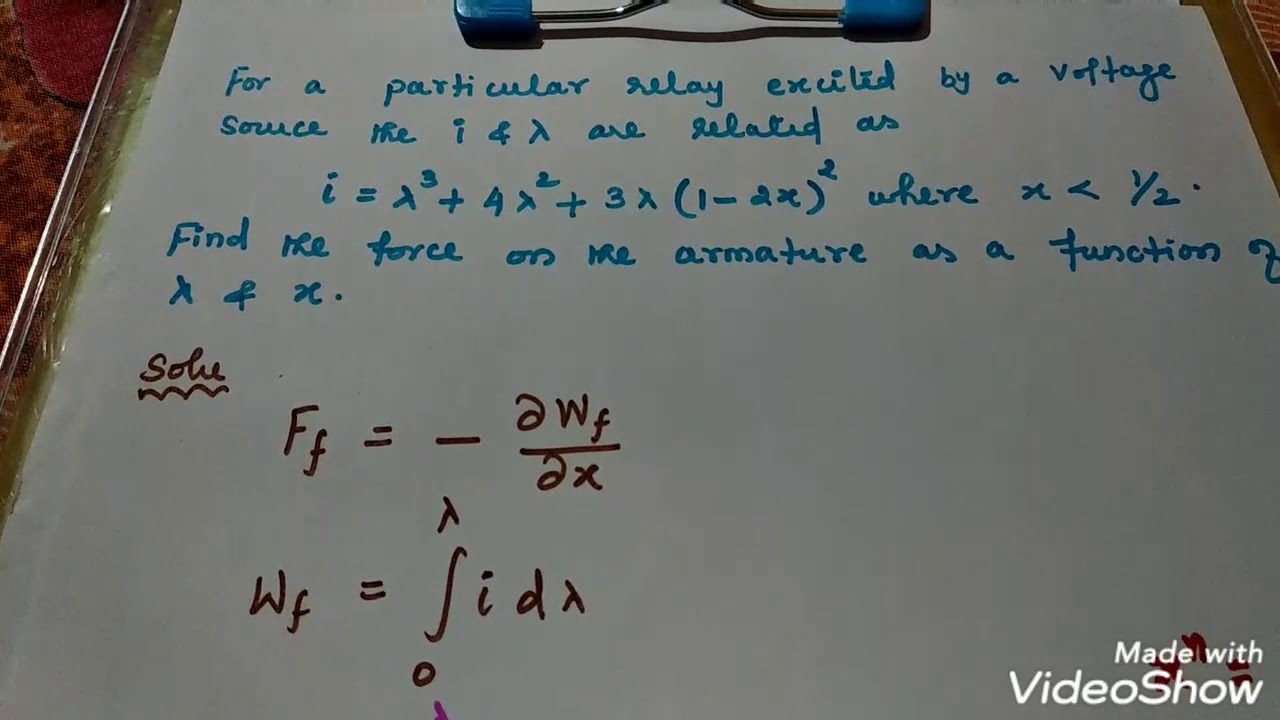 For a particular relay excited by a voltage
source the i & λ are related as
i = λ³ + 4λ² + 3λ (1-2x)² where x < 1/2.
Find the force on the armature as a function of
λ & x.
Solu
F_f = - ∂W_f / ∂x
W_f = ∫₀^λ i dλ
λ
Made with
VideoShow